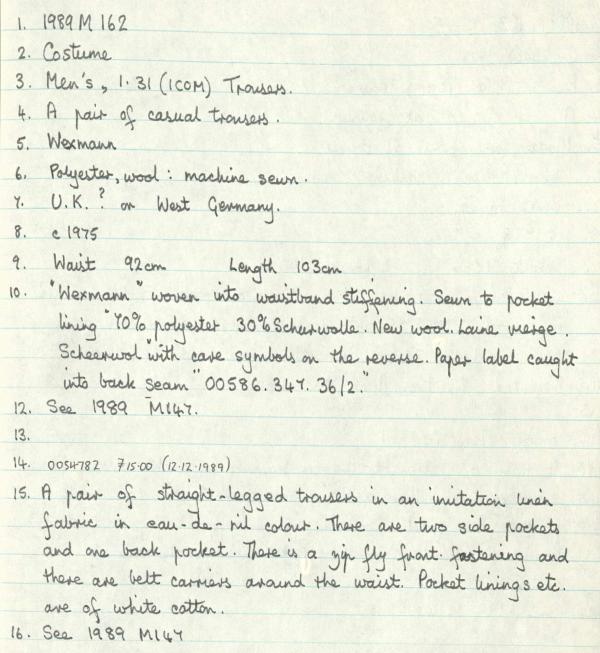 1. 1989 M 162
2. Costume
3. Men's, 1.31 (ICOM) Trousers.
4. A pair of casual trousers.
5. Wexmann
6. Polyester, wool : machine sewn.
7. U.K.? or West Germany.
8. c 1975
9. Waist 92cm Length 103cm
10. "Wexmann" woven into waistband stiffening. Sewn to pocket
lining "70% polyester 30% Schurwolle. New wool. Laine vierge.
Scheerwol" with care symbols on the reverse. Paper label caught
into back seam "00586.347.36/2."
12. See 1989 M147.
13.
14. 0054782 715.00 (12.12.1989)
15. A pair of straight-legged trousers in an imitation linen
fabric in eau-de-nil colour. There are two side pockets
and one back pocket. There is a zip fly front fastening and
there are belt carriers around the waist. Pocket linings etc.
are of white cotton.
16. See 1989 M147